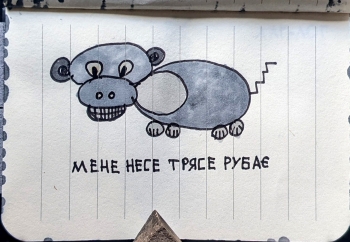 МЕНЕ НЕСЕ ТРЯСЕ РУБАЄ